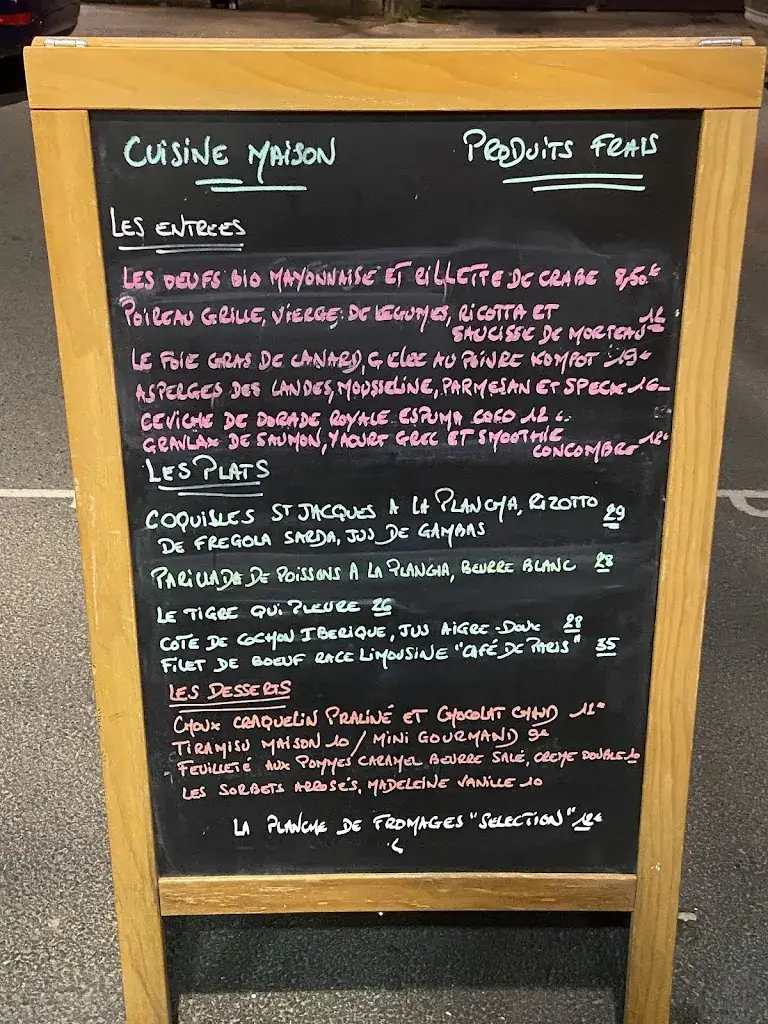 CUISINE MAISON
PRODUITS FRAIS
LES ENTREES
LES OEUFS BIO MAYONNAISE ET RILLETTE DE CRABE 8,50€
POIREAU GRILLE, VIERGE DE LEGUMES, RICOTTA ET
SAUCISSE DE MORTEAU
LE FOIE GRAS DE CANARD, GELEE AU POIVRE KOMPOT 19€
ASPERGES DES LANDES, MOUSSELINE, PARMESAN ET SPECK 16
CEVICHE DE DORADE ROYALE ESPUMA COCO 12€
GRAVLAX DE SAUMON, YAOURT GREC ET SMOOTHIE
CONCOMBRE 12€
LES PLATS
COQUILLES ST JACQUES A LA PLANCHA, RIZOTTO
DE FREGOLA SARDA, JUS DE GAMBAS 29
PARILLADE DE POISSONS A LA PLANCHA, BEURRE BLANC 28
LE TIGRE QUI PLEURE 26
COTE DE COCHON IBERIQUE, JUS AIGRE-DOUX 28
FILET DE BOEUF RACE LIMOUSINE "CAFÉ DE PARIS" 35
LES DESSERTS
CHOUX CRAQUELIN PRALINÉ ET CHOCOLAT CHAUD
TIRAMISU MAISON 10 / MINI GOURMAND 9€
FEUILLETÉ AUX POMMES CARAMEL BEURRE SALÉ, CREME DOUBLE 10
LES SORBETS ARROSÉS, MADELEINE VANILLE 10
LA PLANCHE DE FROMAGES "SELECTION" 12€